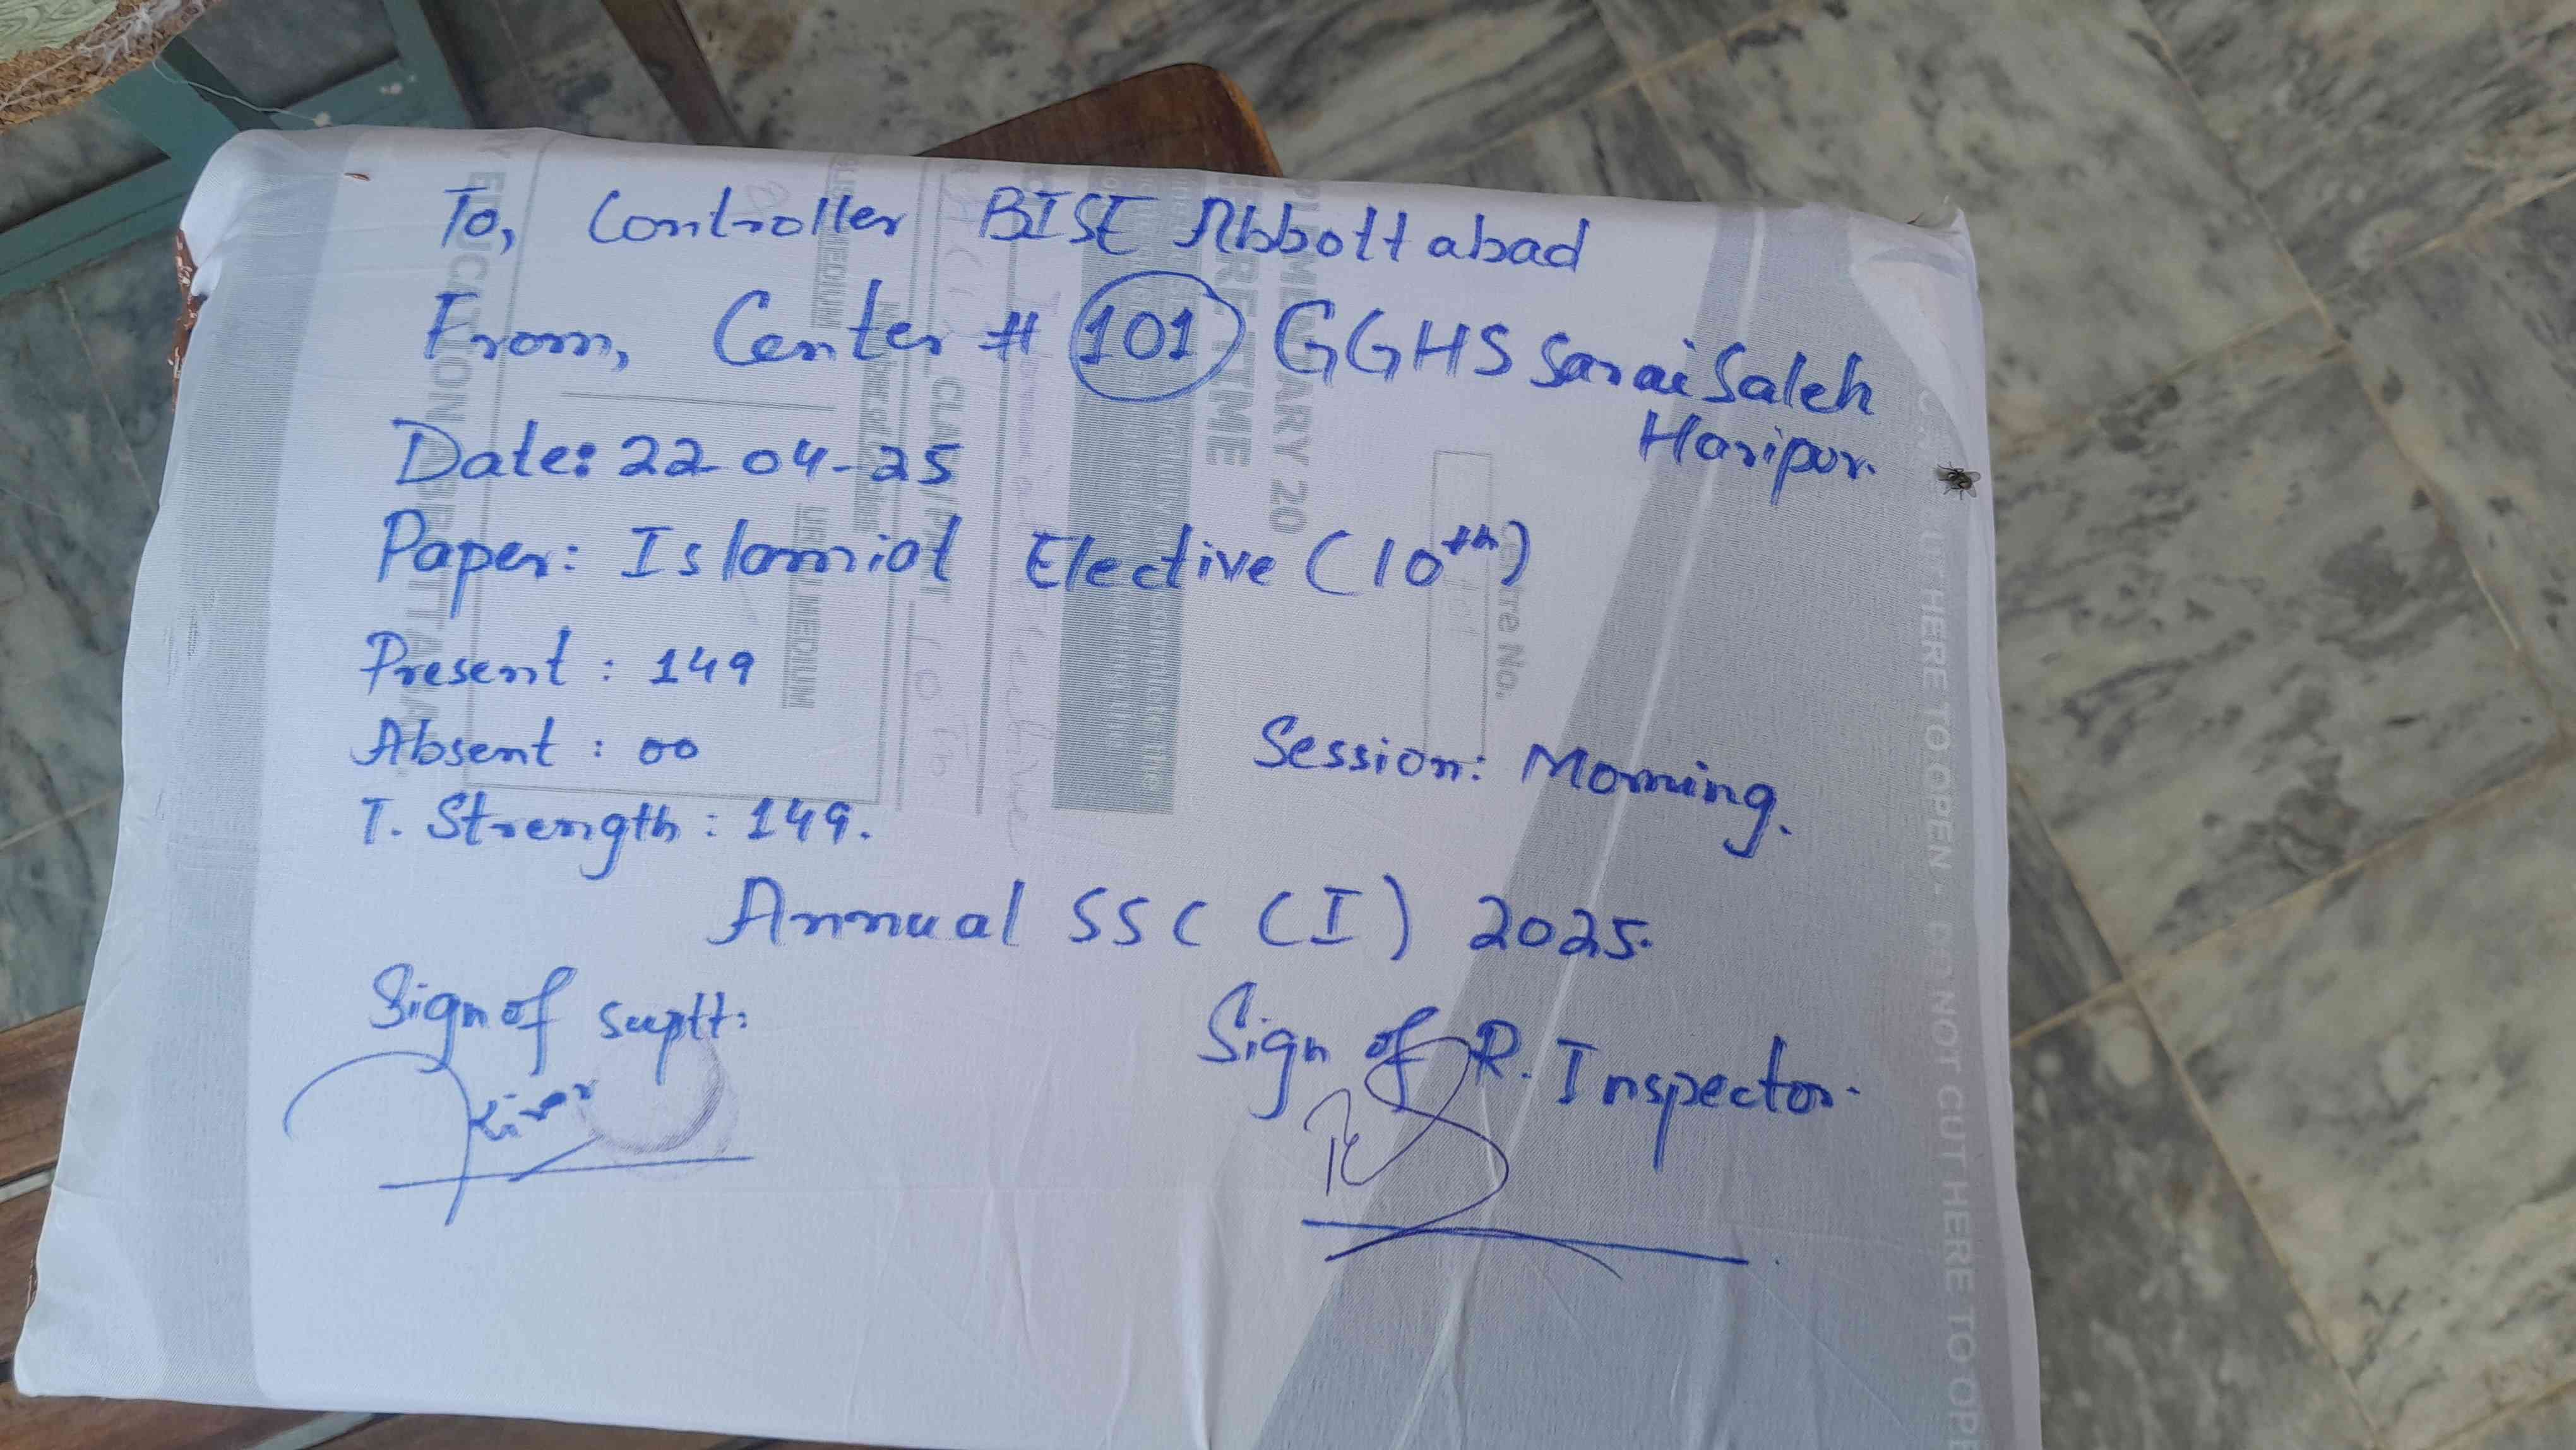 To, Controller BISE Abbottabad
From, Center # 101 GGHS Sarai Saleh
Haripur.
Date: 22-04-25
Paper: Islamiat Elective (10th)
Present : 149
Absent : 00
Session: Morning.
T. Strength : 149.
Annual SSC (I) 2025.
Sign of suptt:
Sign of R. Inspector.
CUT HERE TO OPEN - DO NOT CUT HERE TO OPE
CLASS/PART
URDU MEDIUM
Centre No.